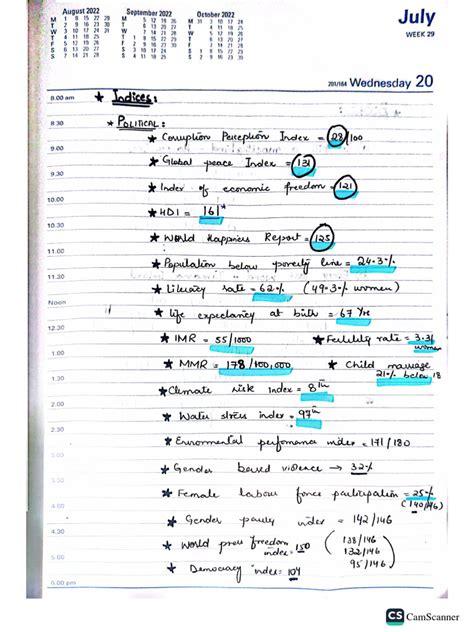 August 2022
M 1 8 15 22 29
T 2 9 16 23 30
W 3 10 17 24 31
T 4 11 18 25
F 5 12 19 26
S 6 13 20 27
S 7 14 21 28
September 2022
M 5 12 19 26
T 6 13 20 27
W 7 14 21 28
T 1 8 15 22 29
F 2 9 16 23 30
S 3 10 17 24
S 4 11 18 25
October 2022
M 31 3 10 17 24
T 4 11 18 25
W 5 12 19 26
T 6 13 20 27
F 7 14 21 28
S 1 8 15 22 29
S 2 9 16 23 30
July
WEEK 29
201/164 Wednesday 20
8.00 am ★ Indices:
8.30 ★ POLITICAL:
★ Corruption Perception Index = 28/100
9.00
★ Global peace Index = 131
9.30
★ Index of economic freedom = 121
10.00
★ HDI = 161
10.30
★ World Happiness Report = 125
11.00
★ Population below poverty line = 24.3%
11.30
★ Literacy rate = 62% (49.3% women)
Noon
★ life expectancy at birth = 67 Yrs
12.30
★ IMR = 55/1000 ★ Fertility rate = 3.31 women
1.00
★ MMR = 178/100,000 ★ Child marriage 21% below 18
1.30
★ Climate risk index = 8th
2.00
★ Water stress index = 97th
2.30
★ Enviromental perfomance index = 171/180
3.00
★ Gender based violence → 32%
3.30
★ Female labour force participation = 25% (140/146)
4.00
★ Gender parity index = 142/146
4.30
★ World press freedom index = 150 (138/146
132/146
5.00
★ Democracy index = 104 95/146)
6.00 pm
CS CamScanner